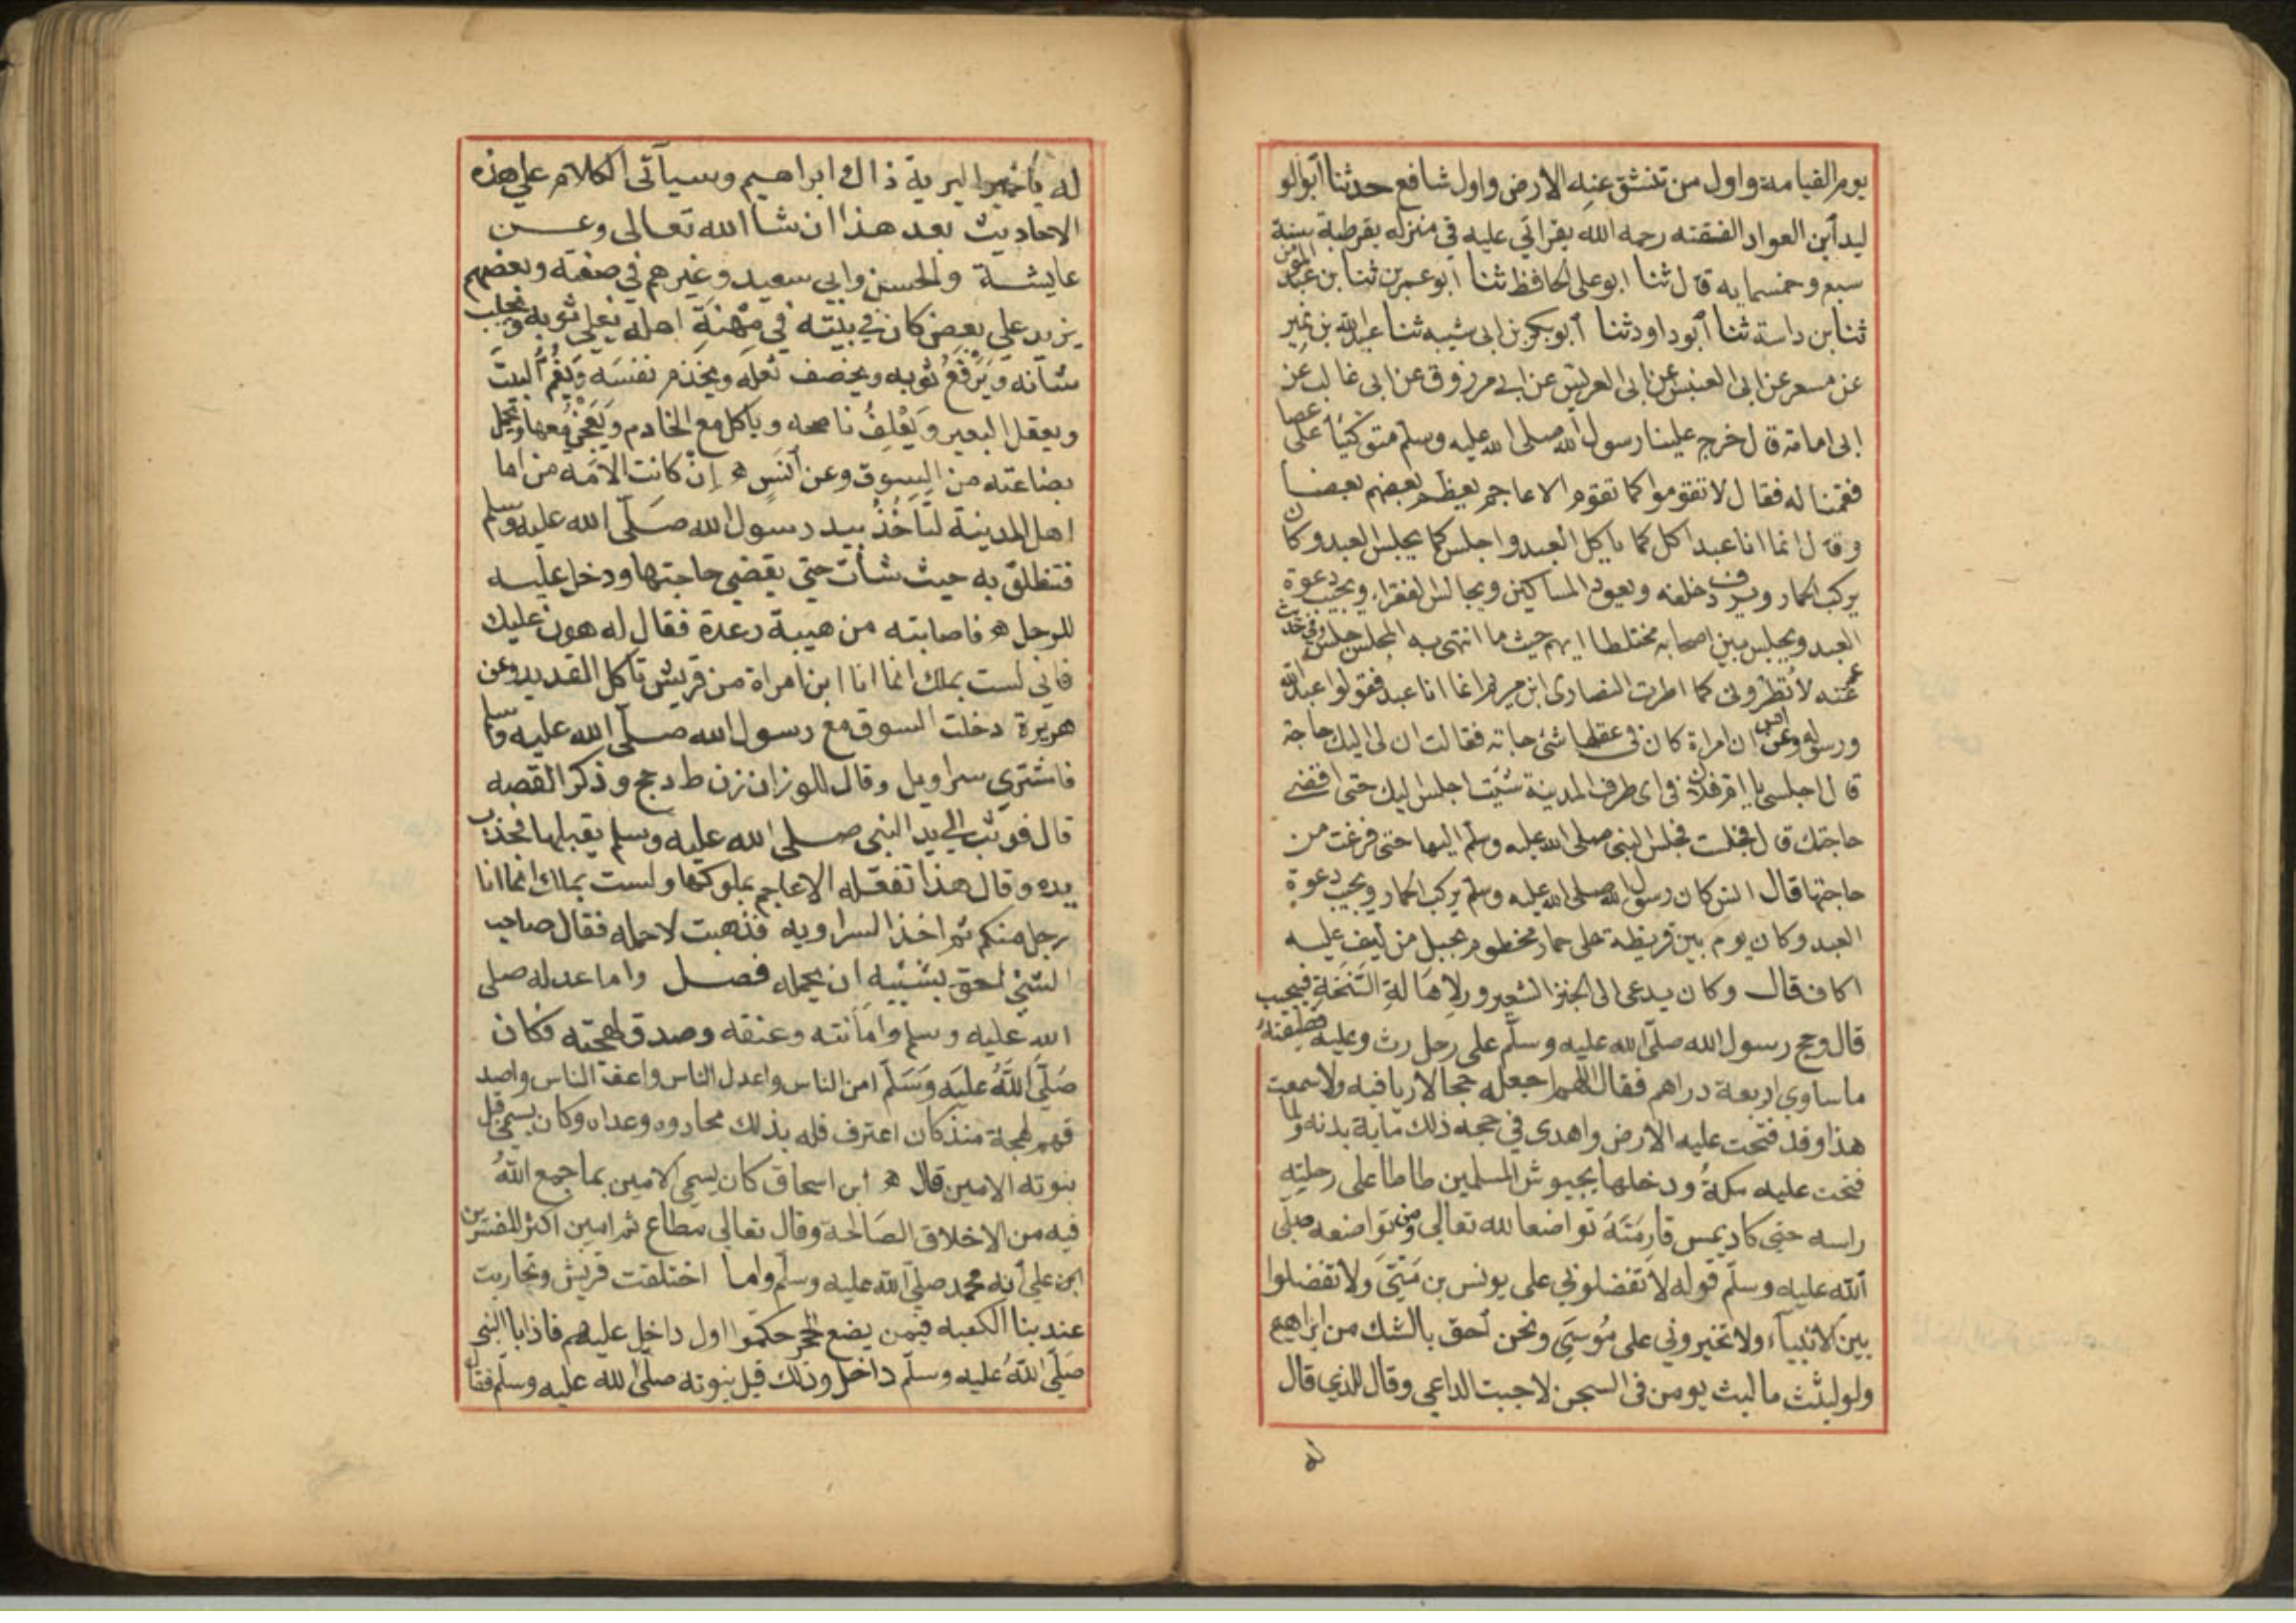 يوم القيامة واول من تنشق عنه الارض واول شافع حدثنا ابوالو
ليد ابن العواد الفقته رحمه الله بقراتي عليه في منزله بقرطبة سنة
سبع وخمسمايه قال ثنا ابو على الحافظ ثنا ابو عمر بن ثنا بن عبد المؤمن
ثنا بن داسة ثنا ابو داود ثنا ابو بكر بن ابى شيبه ثنا عبد الله بن نمير
عن مسعر عن ابى العنبس عن ابى العدبس عن ابى مرزوق عن ابى غالب عن
ابى امامة قال خرج علينا رسول الله صلى الله عليه وسلم متوكئا على عصا
فقمنا له فقال لا تقوموا كما تقوم الاعاجم يعظم بعضهم بعضا
وقال انما انا عبد اكل كما ياكل العبد واجلس كما يجلس العبد وكان
يركب الحمار ويردف خلفه ويعود المساكين ويجالس الفقراء ويجيب دعوة
العبد ويجلس بين اصحابه مختلطا ايهم حيث ما انتهى به المجلس جلس وفى حديث
عمر عنه لا تطرونى كما اطرت النصارى ابن مريم انما انا عبد فقولوا عبد الله
ورسوله وعن انس ان امراة كان فى عقلها شئ جاته فقالت ان لى اليك حاجة
قال اجلسى يا ام فلان فى اى طرف المدينة شئت اجلس اليك حتى اقضى
حاجتك قال فجلست فجلس النبى صلى الله عليه وسلم اليها حتى فرغت من
حاجتها قال انس كان رسول الله صلى الله عليه وسلم يركب الحمار ويجيب دعوة
العبد وكان يوم بين قريظة على حمار مخطوم بحبل من ليف عليه
اكاف قال وكان يدعى الى الخبز الشعير ورلاهالة السنخة فيجيب
قال وحج رسول الله صلى الله عليه وسلم على رحل رث وعليه قطيفة
ما ساوي اربعة دراهم فقال اللهم اجعله حجا لا ريا فيه ولا سمعت
هذا وقد فتحت عليه الارض واهدى في حجه ذلك ماية بدنه ولما
فتحت عليه مكة ودخلها بجيوش المسلمين طاطا على رحلته
راسه حتى كاد يمس قادمته تواضعا لله تعالى ومن تواضعه صلى
الله عليه وسلم قوله لا تفضلوني على يونس بن متى ولا تفضلوا
بين الانبياء ولا تخيروني على موسى ونحن احق بالشك من ابراهيم
ولو لبثت ما لبث يوسن فى السجن لاجبت الداعي وقال للذي قال
له
له يا خير البرية ذاك ابراهيم وسيآتى الكلام على هذه
الاحاديث بعد هذا ان شا الله تعالى وعن
عايشة والحسن وابي سعيد وغيرهم في صفته وبعضهم
يزيد على بعض كان في بيته في مهنة اهله يفلي ثوبه ويحلب
شاته ويرقع ثوبه ويخصف نعله ويخدم نفسه ويقم البيت
ويعقل البعير ويعلف ناضحه وياكل مع الخادم ويعجن معها ويحمل
بضاعته من السوق وعن انس ه ان كانت الامه من اما
اهل المدينة لتأخذ بيد رسول الله صلى الله عليه وسلم
فتنطلق به حيث شأت حتى يقضي حاجتها ودخل عليه
للرجل ه فاصابته من هيبة رعدة فقال له هون عليك
فاني لست بملك انما انا ابن امراة من قريش تاكل القديد وعن
هريرة دخلت السوق مع رسول الله صلى الله عليه وسلم
فاشترى سراويل وقال للوزان زن وارجح وذكر القصه
قال فوثب الي يد النبي صلى الله عليه وسلم يقبلها فجذب
يده وقال هذا تفعله الاعاجم بملوكها ولست بملك انما انا
رجل منكم ثم اخذ السراويه فذهبت لاحمله فقال صاحب
الشئ احق بشيئه ان يحمله فصل واما عدله صلى
الله عليه وسلم وامانته وعفته وصدق لهجته فكان
صلى الله عليه وسلم امن الناس واعدل الناس واعف الناس واصد
قهم لهجة منذ كان اعترف فله بذلك محادوه وعداه وكان يسمى قبل
بنوته الامين قال ه ابن اسحاق كان يسمى الامين بما جمع الله
فيه من الاخلاق الصالحة وقال تعالى مطاع ثم امين اكثر المفسرين
على أنه محمد صلى الله عليه وسلم واما اختلفت قريش وتحاربت
عند بنا الكعبه فيمن يضع الحجر حكموا اول داخل عليهم فاذا بالنبى
صلى الله عليه وسلم داخل وذلك قبل بنوته صلى الله عليه وسلم فقال